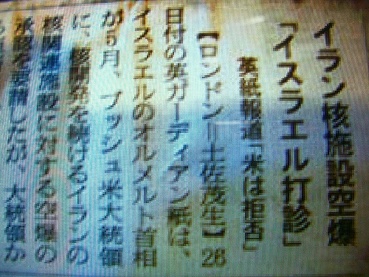 イラン核施設空爆
「イスラエル打診」
英紙報道「米は拒否」
【ロンドン=土佐茂生】26
日付の英ガーディアン紙は、
イスラエルのオルメルト首相
が5月、ブッシュ米大統領
に、核開発を続けるイランの
核関連施設に対する空爆の
承認を要請したが、大統領か